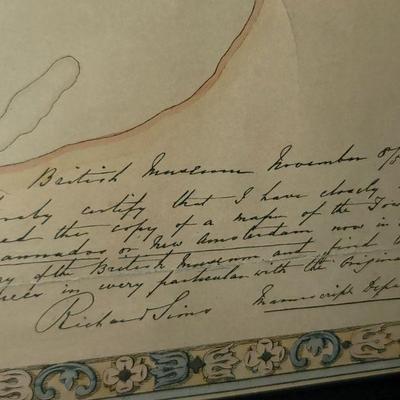 British Museum November 8/5
reby certify that I have closely
ed this copy of a map of the Tow
annados or New Amsterdam now in
ry of the British Museum and find
rees in every particular with the Origina
Richard Sims Manuscript Depa